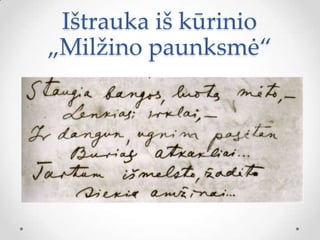 Ištrauka iš kūrinio
„Milžino paunksmė“
Staugia bangos, luotą mėto,–
Lenkiasi irklai,–
Ir dangun, ugnim pasėtan
Burias atkakliai...
Tartum išmelsto, žadėto
Siekia amžinai...